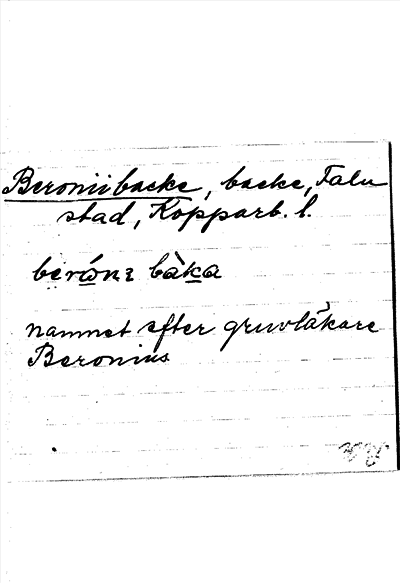 Beroniibacke, backe, Falu
stad, Kopparb. l.
berώnɩ bàka
namnet efter gruvläkare
Beronius